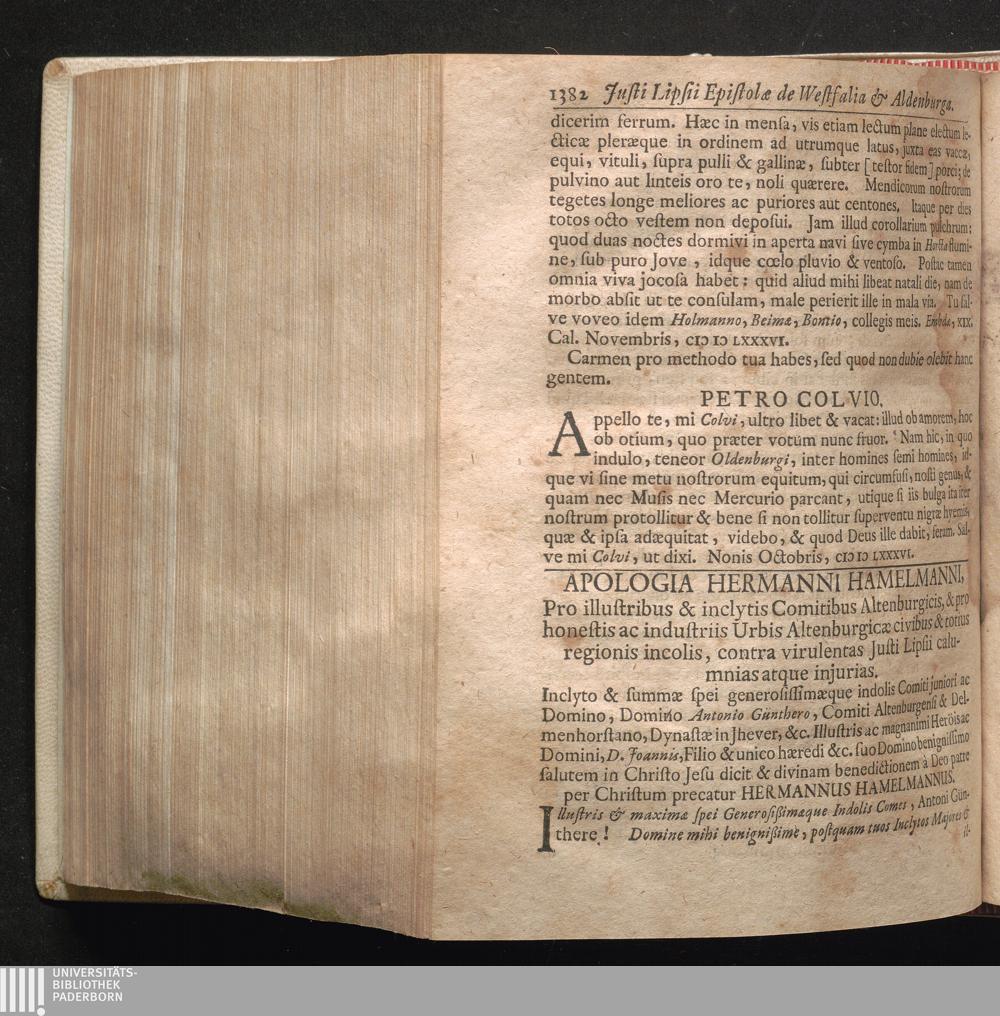 1382 Juſti Lipſii Epiſtolæ de Weſtfalia & Aldenburga.
dicerim ferrum. Hæc in menſa, vis etiam lectum plane electum le-
cticæ pleræque in ordinem ad utrumque latus, juxta eas vaccæ,
equi, vituli, ſupra pulli & gallinæ, ſubter [teſtor fidem] porci; de
pulvino aut linteis oro te, noli quærere. Mendicorum noſtrorum
tegetes longe meliores ac puriores aut centones. Itaque per dies
totos octo veſtem non depoſui. Jam illud corollarium pulchrum:
quod duas noctes dormivi in aperta navi ſive cymba in Horſta flumi-
ne, ſub puro Jove, idque cœlo pluvio & ventoſo. Poſtac tamen
omnia viva jocoſa habet: quid aliud mihi libeat natali die, nam de
morbo abſit ut te conſulam, male perierit ille in mala via. Tu ſal-
ve voveo idem Holmanno, Beimæ, Bontio, collegis meis. Embdæ, XIX.
Cal. Novembris, CIƆ IƆ LXXXVI.
Carmen pro methodo tua habes, ſed quod non dubie olebit hanc
gentem.
PETRO COLVIO.
Appello te, mi Colvi, ultro libet & vacat: illud ob amorem, hoc
ob otium, quo præter votum nunc fruor. Nam hic, in quo
indulo, teneor Oldenburgi, inter homines ſemi homines, id-
que vi ſine metu noſtrorum equitum, qui circumfuſi, noſti genus, &
quam nec Muſis nec Mercurio parcant, utique ſi iis bulga ita iter
noſtrum protollitur & bene ſi non tollitur ſuperventu nigræ hyemis,
quæ & ipſa adæquitat, videbo, & quod Deus ille dabit, feram. Sal-
ve mi Colvi, ut dixi. Nonis Octobris, CIƆ IƆ LXXXVI.
APOLOGIA HERMANNI HAMELMANNI,
Pro illuſtribus & inclytis Comitibus Altenburgicis, & pro
honeſtis ac induſtriis Urbis Altenburgicæ civibus & totius
regionis incolis, contra virulentas Juſti Lipſii calu-
mnias atque injurias.
Inclyto & ſummæ ſpei generoſiſſimæque indolis Comiti juniori ac
Domino, Domino Antonio Günthero, Comiti Altenburgenſi & Del-
menhorſtano, Dynaſtæ in Jhever, &c. Illuſtris ac magnanimi Herois ac
Domini, D. Joannis, Filio & unico hæredi &c. ſuo Domino benigniſſimo
ſalutem in Chriſto Jeſu dicit & divinam benedictionem à Deo patre
per Chriſtum precatur HERMANNUS HAMELMANNUS.
Illuſtris & maximæ ſpei Generoſiſſimæque Indolis Comes, Antoni Gün-
there! Domine mihi benigniſſime, poſtquam tuos Inclytos Majores &
il-
UNIVERSITÄTS-
BIBLIOTHEK
PADERBORN